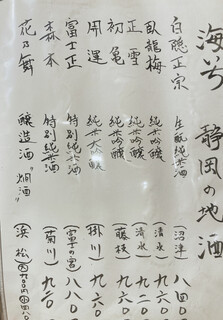 海号 静岡の地酒
白隠正宗 生酛純米酒 (沼津) 八四〇
臥龍梅 純米吟醸 (清水) 九六〇
正雪 純米吟醸 (清水) 九二〇
初亀 純米吟醸 (藤枝) 九六〇
開運 純米大吟醸 (掛川) 九六〇
富士正 特別純米酒 (富士の宮) 八八〇
森本 特別純米酒 (菊川) 九二〇
花の舞 醸造酒 "燗酒" (浜松)